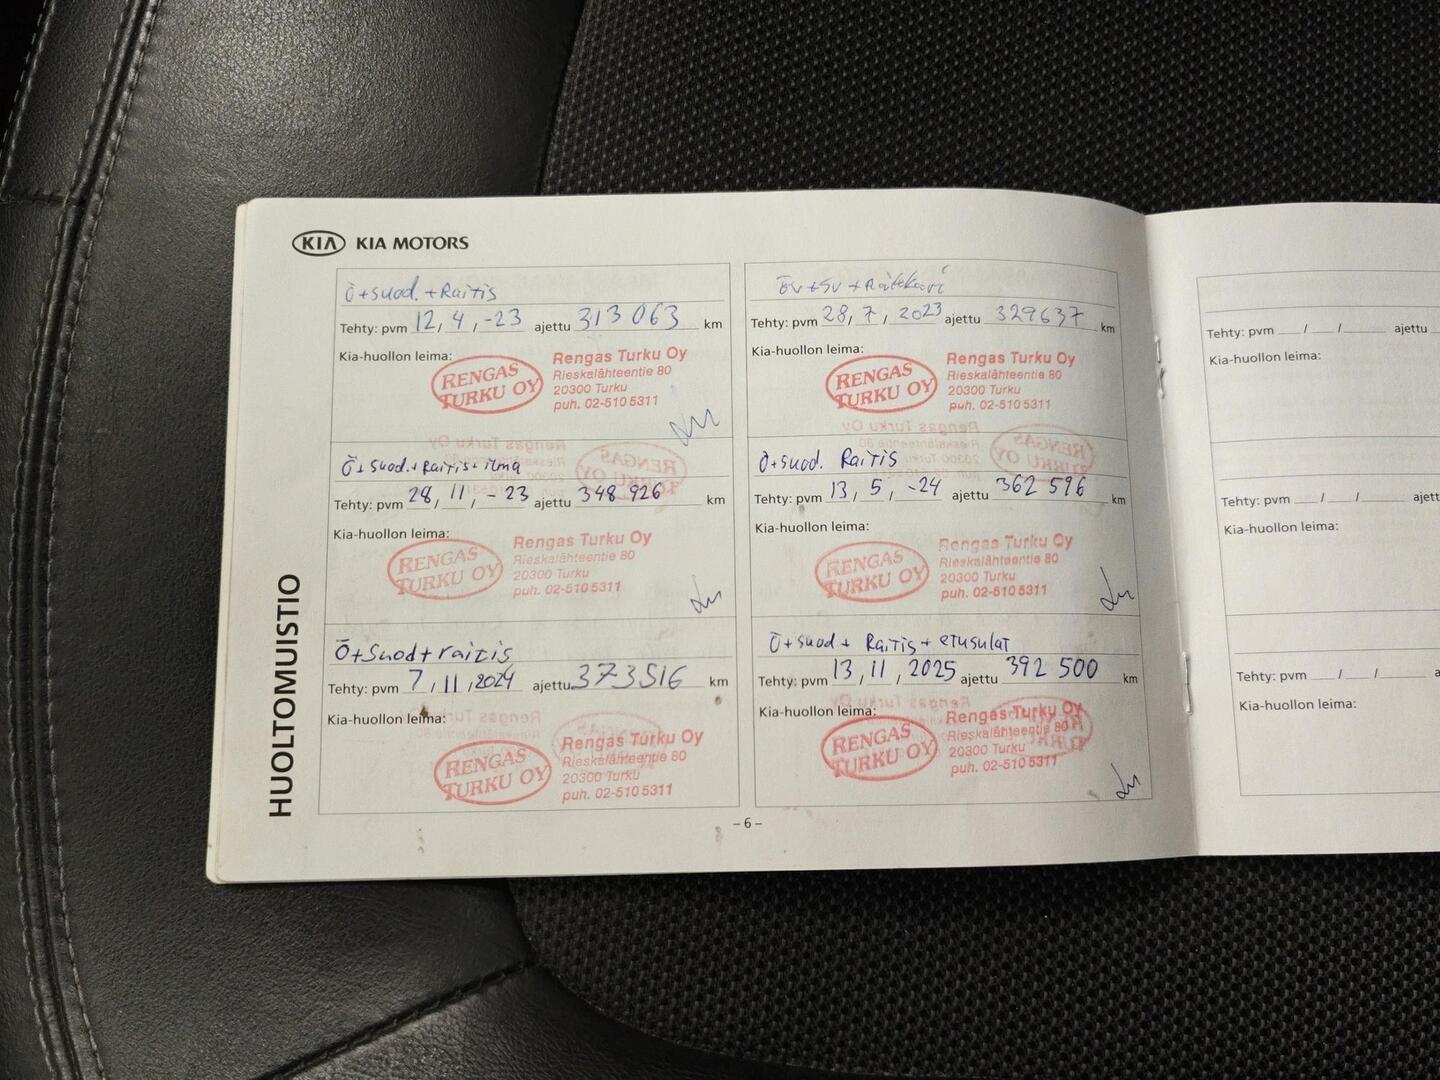 KIA KIA MOTORS
Ö+suod.+Raitis
Tehty: pvm 12, 4, -23 ajettu 313 063 km
Kia-huollon leima:
RENGAS TURKU OY
Rengas Turku Oy
Rieskalähteentie 80
20300 Turku
puh. 02-510 5311
ÖV+SV+Raitekaasi
Tehty: pvm 28, 7, 2023 ajettu 329637 km
Kia-huollon leima:
RENGAS TURKU OY
Rengas Turku Oy
Rieskalähteentie 80
20300 Turku
puh. 02-510 5311
Ö+suod.+Raitis+ilma
Tehty: pvm 28, 11, -23 ajettu 348 926 km
Kia-huollon leima:
RENGAS TURKU OY
Rengas Turku Oy
Rieskalähteentie 80
20300 Turku
puh. 02-510 5311
Ö+suod. Raitis
Tehty: pvm 13, 5, -24 ajettu 362 596 km
Kia-huollon leima:
RENGAS TURKU OY
Rengas Turku Oy
Rieskalähteentie 80
20300 Turku
puh. 02-510 5311
Ö+Suod+raitis
Tehty: pvm 7, 11, 2024 ajettu 373516 km
Kia-huollon leima:
RENGAS TURKU OY
Rengas Turku Oy
Rieskalähteentie 80
20300 Turku
puh. 02-510 5311
Ö+suod + Raitis + etusulat
Tehty: pvm 13, 11, 2025 ajettu 392 500 km
Kia-huollon leima:
RENGAS TURKU OY
Rengas Turku Oy
Rieskalähteentie 80
20300 Turku
puh. 02-510 5311
HUOLTOMUISTIO
– 6 –
Tehty: pvm / / ajettu
Kia-huollon leima:
Tehty: pvm / / ajett
Kia-huollon leima:
Tehty: pvm / / a
Kia-huollon leima: